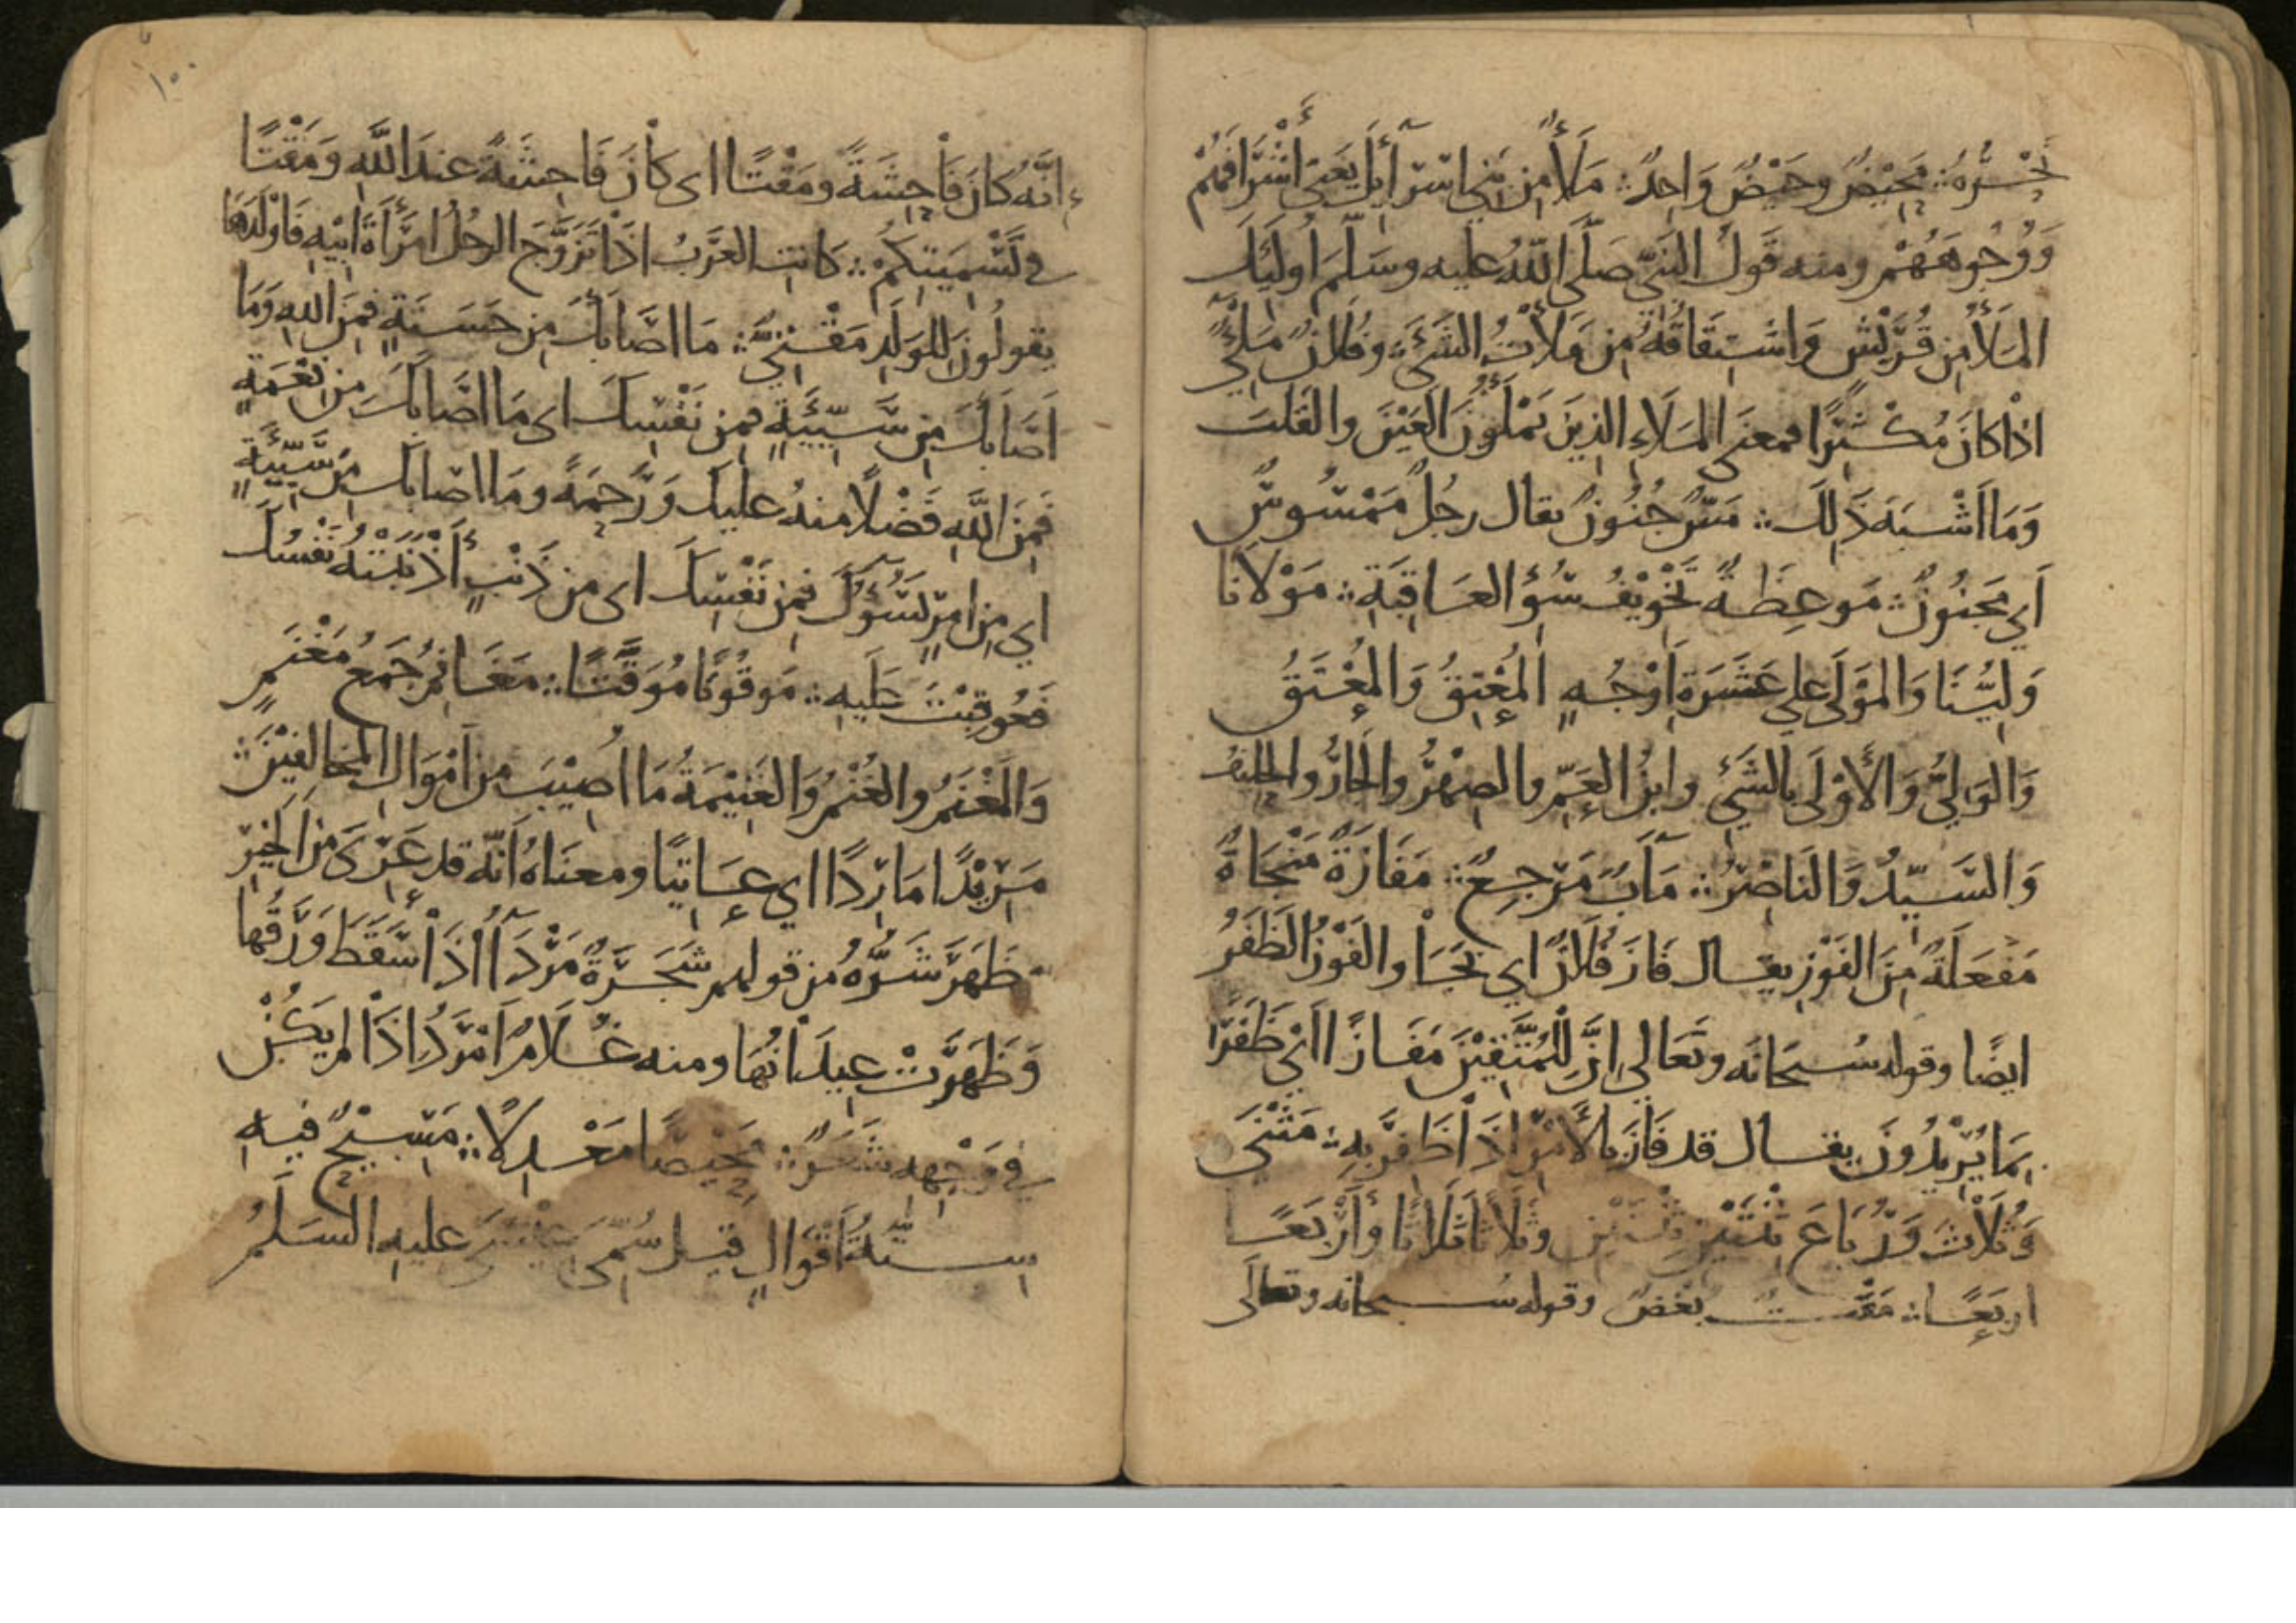 تَحْسُرُهُ ∴ مَحِيْضٌ وحَيْضٌ وَاحِدٌ ∴ مَلَأً مِن بَنِي اسْرَآئِلَ يَعْنِي أَشْرَافَهُمْ
وَوُجُوهَهُمْ ومنه قَولُ النَبِيِّ صَلَّى اللّٰهُ عليه وسَلَّمَ اُولَئِكَ
المَلَأُ مِن قُرَيْشٍ وَاشْتِقَاقُهُ مِن مَلَأْتُ الشَيْءَ وفُلَانٌ مَلِيْءٌ
اذَا كَانَ مُكْثِرًا فمعنى المَلَاءِ الذِينَ يَمْلَؤُنَ العَيْنَ والقَلبَ
وَمَا اَشْبَهَ ذَالِكَ ∴ مَسٌّ جُنُونٌ يقال رجُلٌ مَمْسُوسٌ
اَي مَجنُونٌ ∴ مَوعِظَةٌ تَخْوِيْفُ سُؤِ العَاقِبَةِ ∴ مَوْلَانَا
وَلِيُّنَا وَالمَوْلَى علي عَشَرَةِ اَوْجُهٍ المُعْتِقُ وَالمُعْتَقُ
وَالوَلِيُّ وَالأَوْلَى بالشَيْءِ وابنُ العَمِّ والصِهْرُ والجَارُ والحليفُ
وَالسَيِّدُ وَالنَاصِرُ ∴ مَآبٌ مَرْجِعٌ ∴ مَفَازَةٌ مَنْجَاةٌ
مَفعَلَةٌ مِنَ الفَوْزِ يقال فَازَ فُلَانٌ اي نَجَا والفَوْزُ الظَفَرُ
ايضًا وقوله سُبحَانَه وتَعَالي اِنَّ لِلْمُتَّقِيْنَ مَفَازًا اَيْ ظَفَرًا
بِمَا يُرِيْدُونَ يقال قد فَازَ بالأَمْرِ اذَا ظَفِرَ بِهِ ∴ مَثْنَى
وَثُلَاثَ وَرُبَاعَ ثِنْتَيْنِ ثِنْتَيْنِ وثَلَاثًا ثَلَاثًا وأَرْبَعًا
اربَعًا ∴ مَقْتٌ بُغْضٌ وقوله سُبحانه وتعالَى
اِنَّهُ كَانَ فَاحِشَةً ومَقْتًا اى كَانَ فَاحِشَةً عندَ اللّٰهِ وَمَقْتًا
في تَسْمِيَتِكُمْ ∴ كَانتِ العَرَبُ اذَا تَزَوَّجَ الرجُلُ امْرَأَةَ ابِيْهِ فَاَوْلَدَهَا
يقولُونَ لِلوَلَدِ مَقْتِيٌّ ∴ مَا اصَابَكَ مِن حَسَنَةٍ فمِنَ اللهِ وَمَا
اَصَابَكَ مِن سَيِّئَةٍ فمِن نَفْسِكَ اى مَا اصَابَكَ مِن نِعْمَةٍ
فَمِنَ اللّٰهِ فَضْلًا منهُ عليكَ وَرَحمَةً ومَا اصَابَكَ مِن سَيِّئَةٍ
اي مِن امْرٍ يَسُؤُكَ فمِن نَفْسِكَ اى من ذَنْبٍ أَذْنَبَتْهُ نَفْسُكَ
فَعُوقِبْتَ عَلَيهِ ∴ مَوقُوتًا مُوَقَّتًا ∴ مَغَانِمُ جَمعُ مَغْنَمٍ
وَالمَغْنَمُ والغُنْمُ وَالغَنِيْمَةُ مَا اُصِيْبَ مِن اَمْوَالِ المُخَالِفِيْنَ ∴
مَرِيْدًا مَارِدًا اي عَاتِيًا ومعنَاهُ اَنَّه قد عَرِىَ مِنَ الخَيْرِ
ظَهَرَ شَرُّهُ من قولهم شَجَرَةٌ مَرْدَآ اُذَا سَقَطَ وَرَقُهَا
وَظَهَرَتْ عِيدَانُهَا ومنه غُلَامٌ اَمْرَدُ اذَا لم يَكُنْ
في وَجْهِه شَعَرٌ ∴ مَحِيصًا مَعْدِلًا ∴ مَسِيْحٌ فيهِ
سِتَّةُ اَقْوَالٍ قيل سُمِّىَ عيسَى عليهِ السَلَمُ